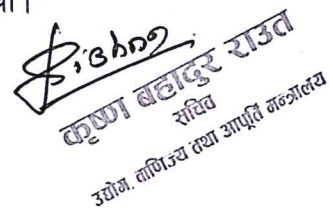 कृष्ण बहादुर राउत
सचिव
उद्योग, वाणिज्य तथा आपूर्ति मन्त्रालय